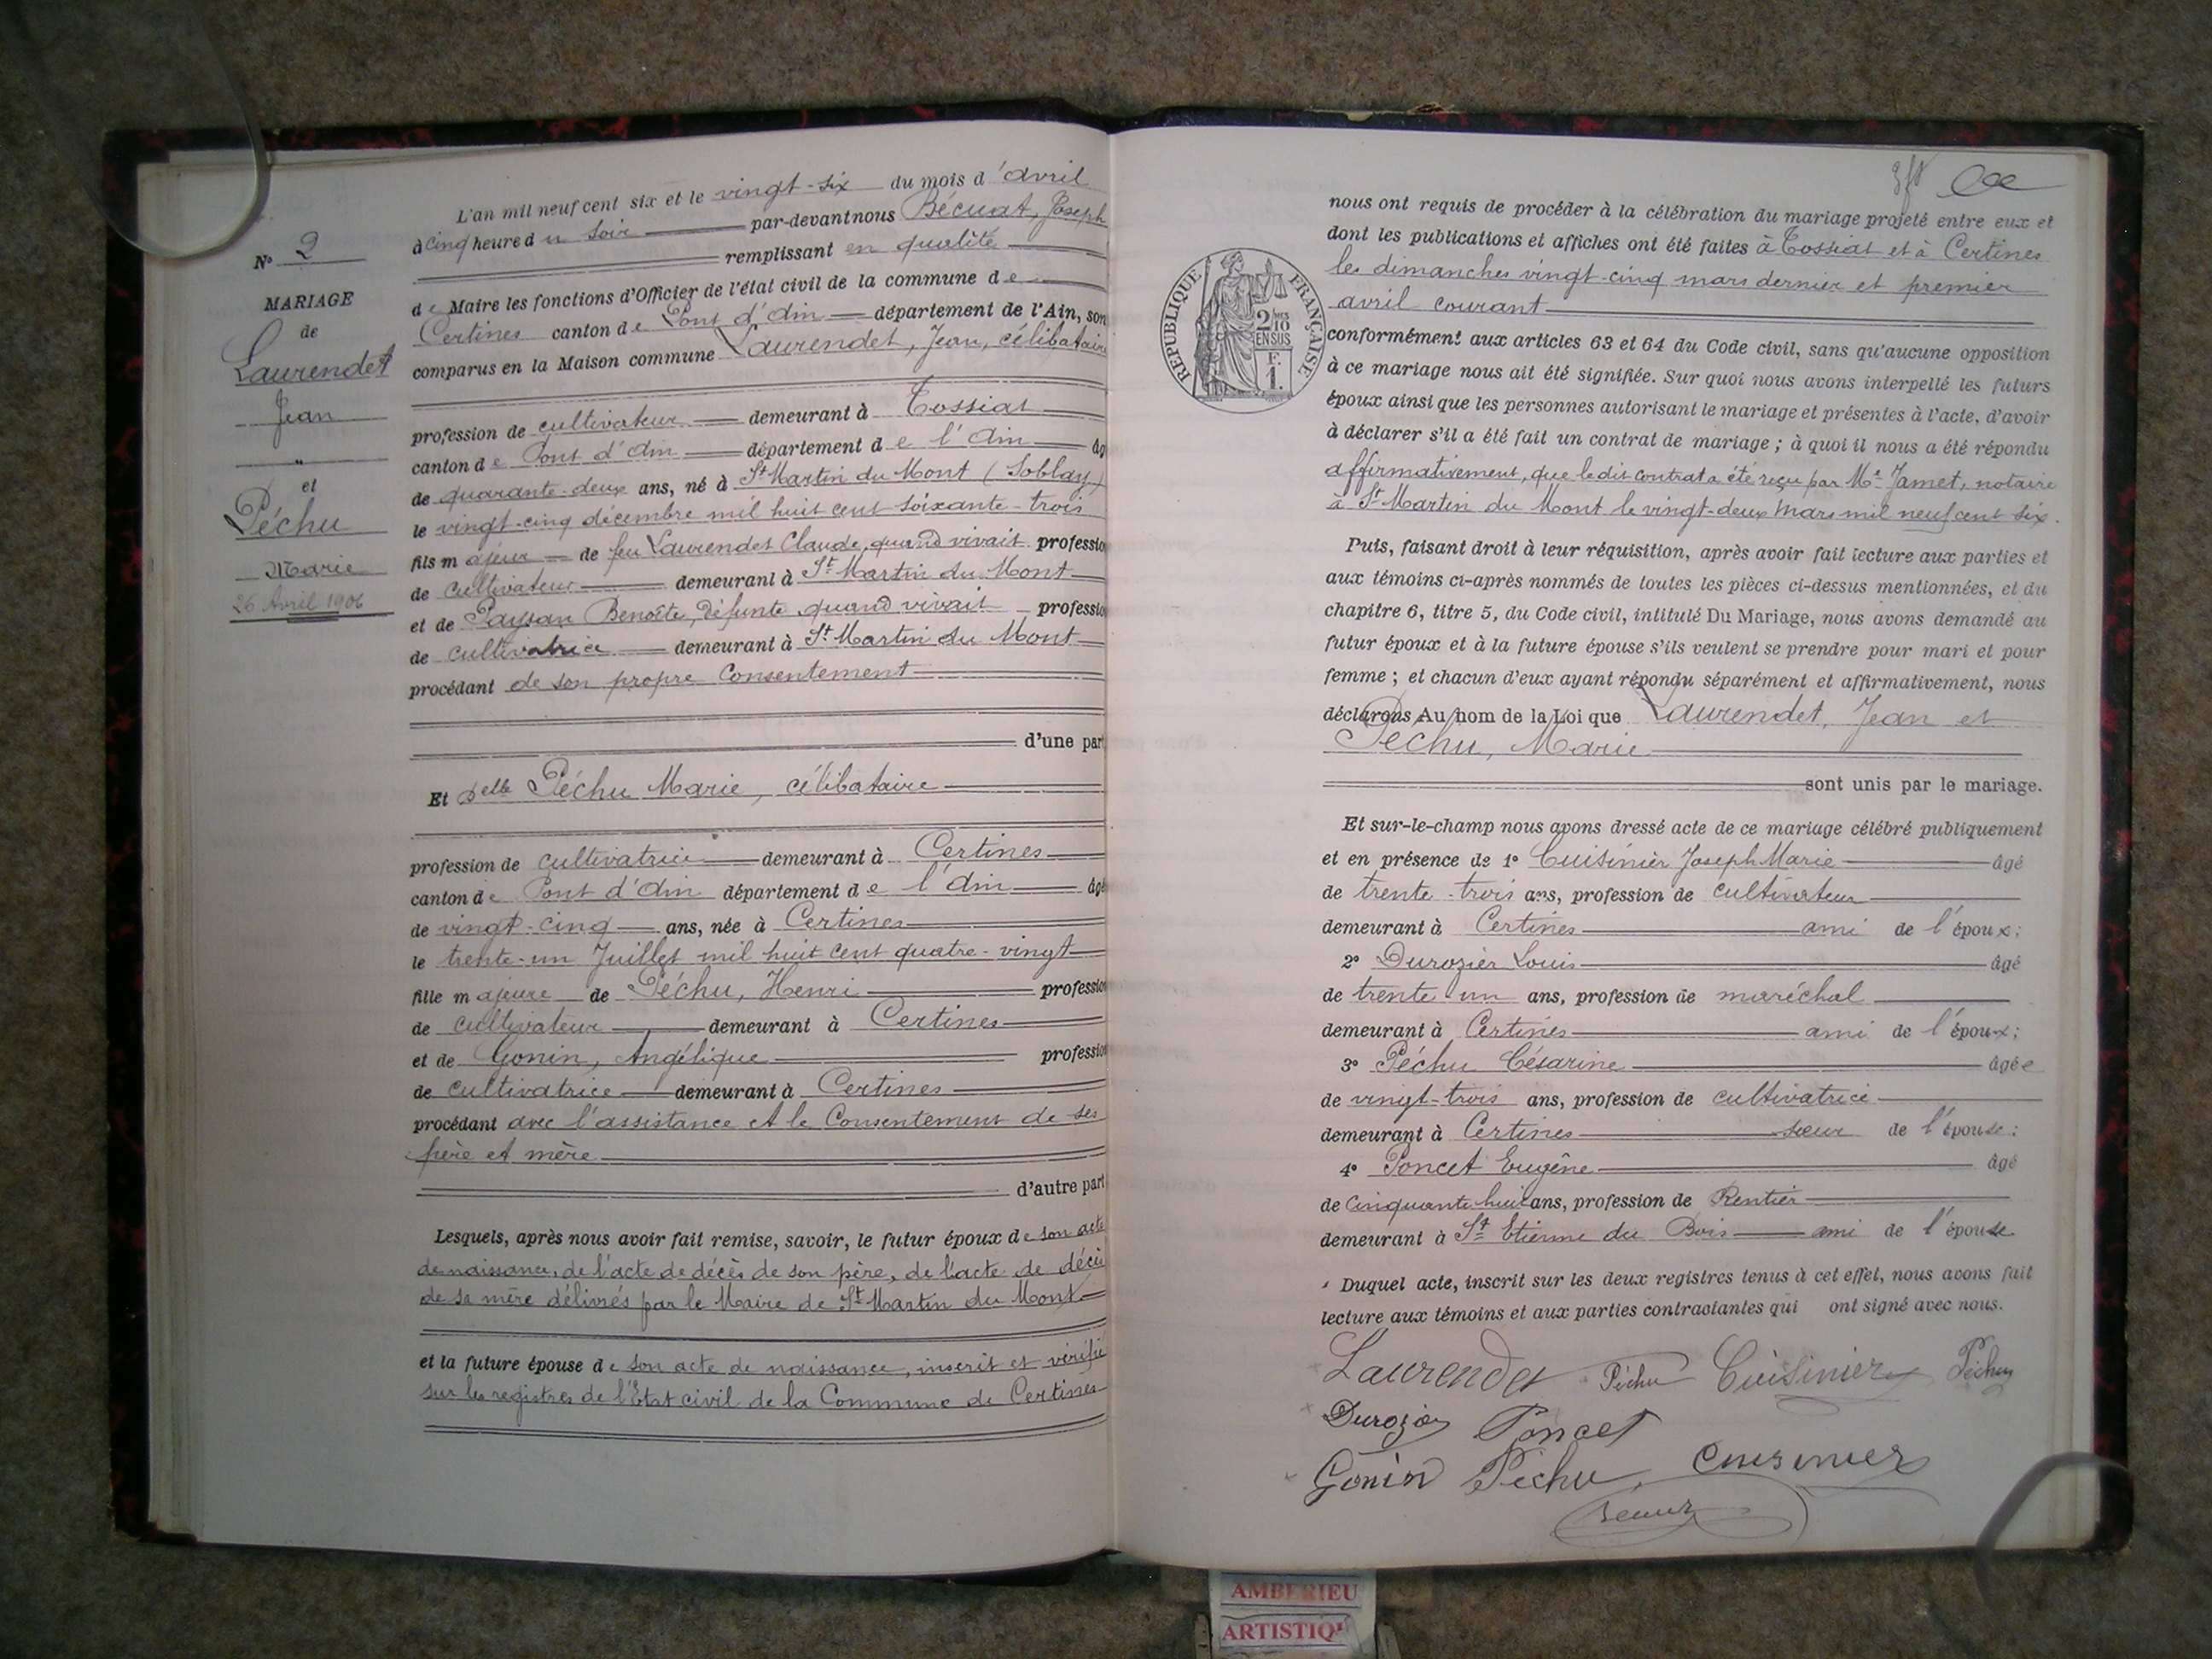 L'an mil neuf cent six et le vingt-six du mois d'avril
à cinq heure du soir par-devant nous Bécuat, Joseph
remplissant en qualité
de Maire les fonctions d'Officier de l'état civil de la commune de
Certines canton de Pont d'Ain département de l'Ain, son
comparus en la Maison commune Laurendet, Jean, célibataire
profession de cultivateur demeurant à Tossiat
canton de Pont d'Ain département de l'Ain âg
de quarante-deux ans, né à St Martin du Mont (Soblay)
le vingt-cinq décembre mil huit cent soixante-trois
fils majeur de feu Laurendet Claude, quand vivait professio
de cultivateur demeurant à St Martin du Mont
et de Paysan Benoîte, défunte quand vivait professio
de cultivatrice demeurant à St Martin du Mont
procédant de son propre Consentement
d'une part
Et Delle Péchu Marie, célibataire
profession de cultivatrice demeurant à Certines
canton de Pont d'Ain département de l'Ain âgé
de vingt-cinq ans, née à Certines
le trente-un Juillet mil huit cent quatre-vingt
fille majeure de Péchu, Henri profession
de cultivateur demeurant à Certines
et de Gonin, Angélique profession
de cultivatrice demeurant à Certines
procédant avec l'assistance et le Consentement de ses
père et mère
d'autre part
Lesquels, après nous avoir fait remise, savoir, le futur époux de son acte
de naissance, de l'acte de décès de son père, de l'acte de décès
de sa mère délivrés par le Maire de St Martin du Mont
et la future épouse de son acte de naissance, inscrit et vérifié
sur les registres de l'Etat civil de la Commune de Certines
N° 2
MARIAGE
de
Laurendet
Jean
et
Péchu
Marie
26 Avril 1906
nous ont requis de procéder à la célébration du mariage projeté entre eux et
dont les publications et affiches ont été faites à Tossiat et à Certines
les dimanches vingt-cinq mars dernier et premier
avril courant
conformément aux articles 63 et 64 du Code civil, sans qu'aucune opposition
à ce mariage nous ait été signifiée. Sur quoi nous avons interpellé les futurs
époux ainsi que les personnes autorisant le mariage et présentes à l'acte, d'avoir
à déclarer s'il a été fait un contrat de mariage ; à quoi il nous a été répondu
affirmativement, que le dit contrat a été reçu par Me Jamet, notaire
à St Martin du Mont le vingt-deux Mars mil neuf cent six.
Puis, faisant droit à leur réquisition, après avoir fait lecture aux parties et
aux témoins ci-après nommés de toutes les pièces ci-dessus mentionnées, et du
chapitre 6, titre 5, du Code civil, intitulé Du Mariage, nous avons demandé au
futur époux et à la future épouse s'ils veulent se prendre pour mari et pour
femme ; et chacun d'eux ayant répondu séparément et affirmativement, nous
déclarons Au nom de la Loi que Laurendet, Jean et
Péchu, Marie
sont unis par le mariage.
Et sur-le-champ nous avons dressé acte de ce mariage célébré publiquement
et en présence de 1° Cuisinier Joseph Marie âgé
de trente-trois ans, profession de cultivateur
demeurant à Certines ami de l'époux;
2° Durozier Louis âgé
de trente-un ans, profession de maréchal
demeurant à Certines ami de l'époux;
3° Péchu Césarine âgée
de vingt-trois ans, profession de cultivatrice
demeurant à Certines soeur de l'épouse;
4° Poncet Eugène âgé
de Cinquante huit ans, profession de Rentier
demeurant à St Etienne du Bois ami de l'épouse
Duquel acte, inscrit sur les deux registres tenus à cet effet, nous avons fait
lecture aux témoins et aux parties contractantes qui ont signé avec nous.
Laurendet Péchu Cuisinier Péchu
Durozier Poncet
Gonin Péchu Cuisinier
Bécuat
RÉPUBLIQUE FRANÇAISE
2/10
EN SUS
F.
1.
AMBERIEU
ARTISTIQ